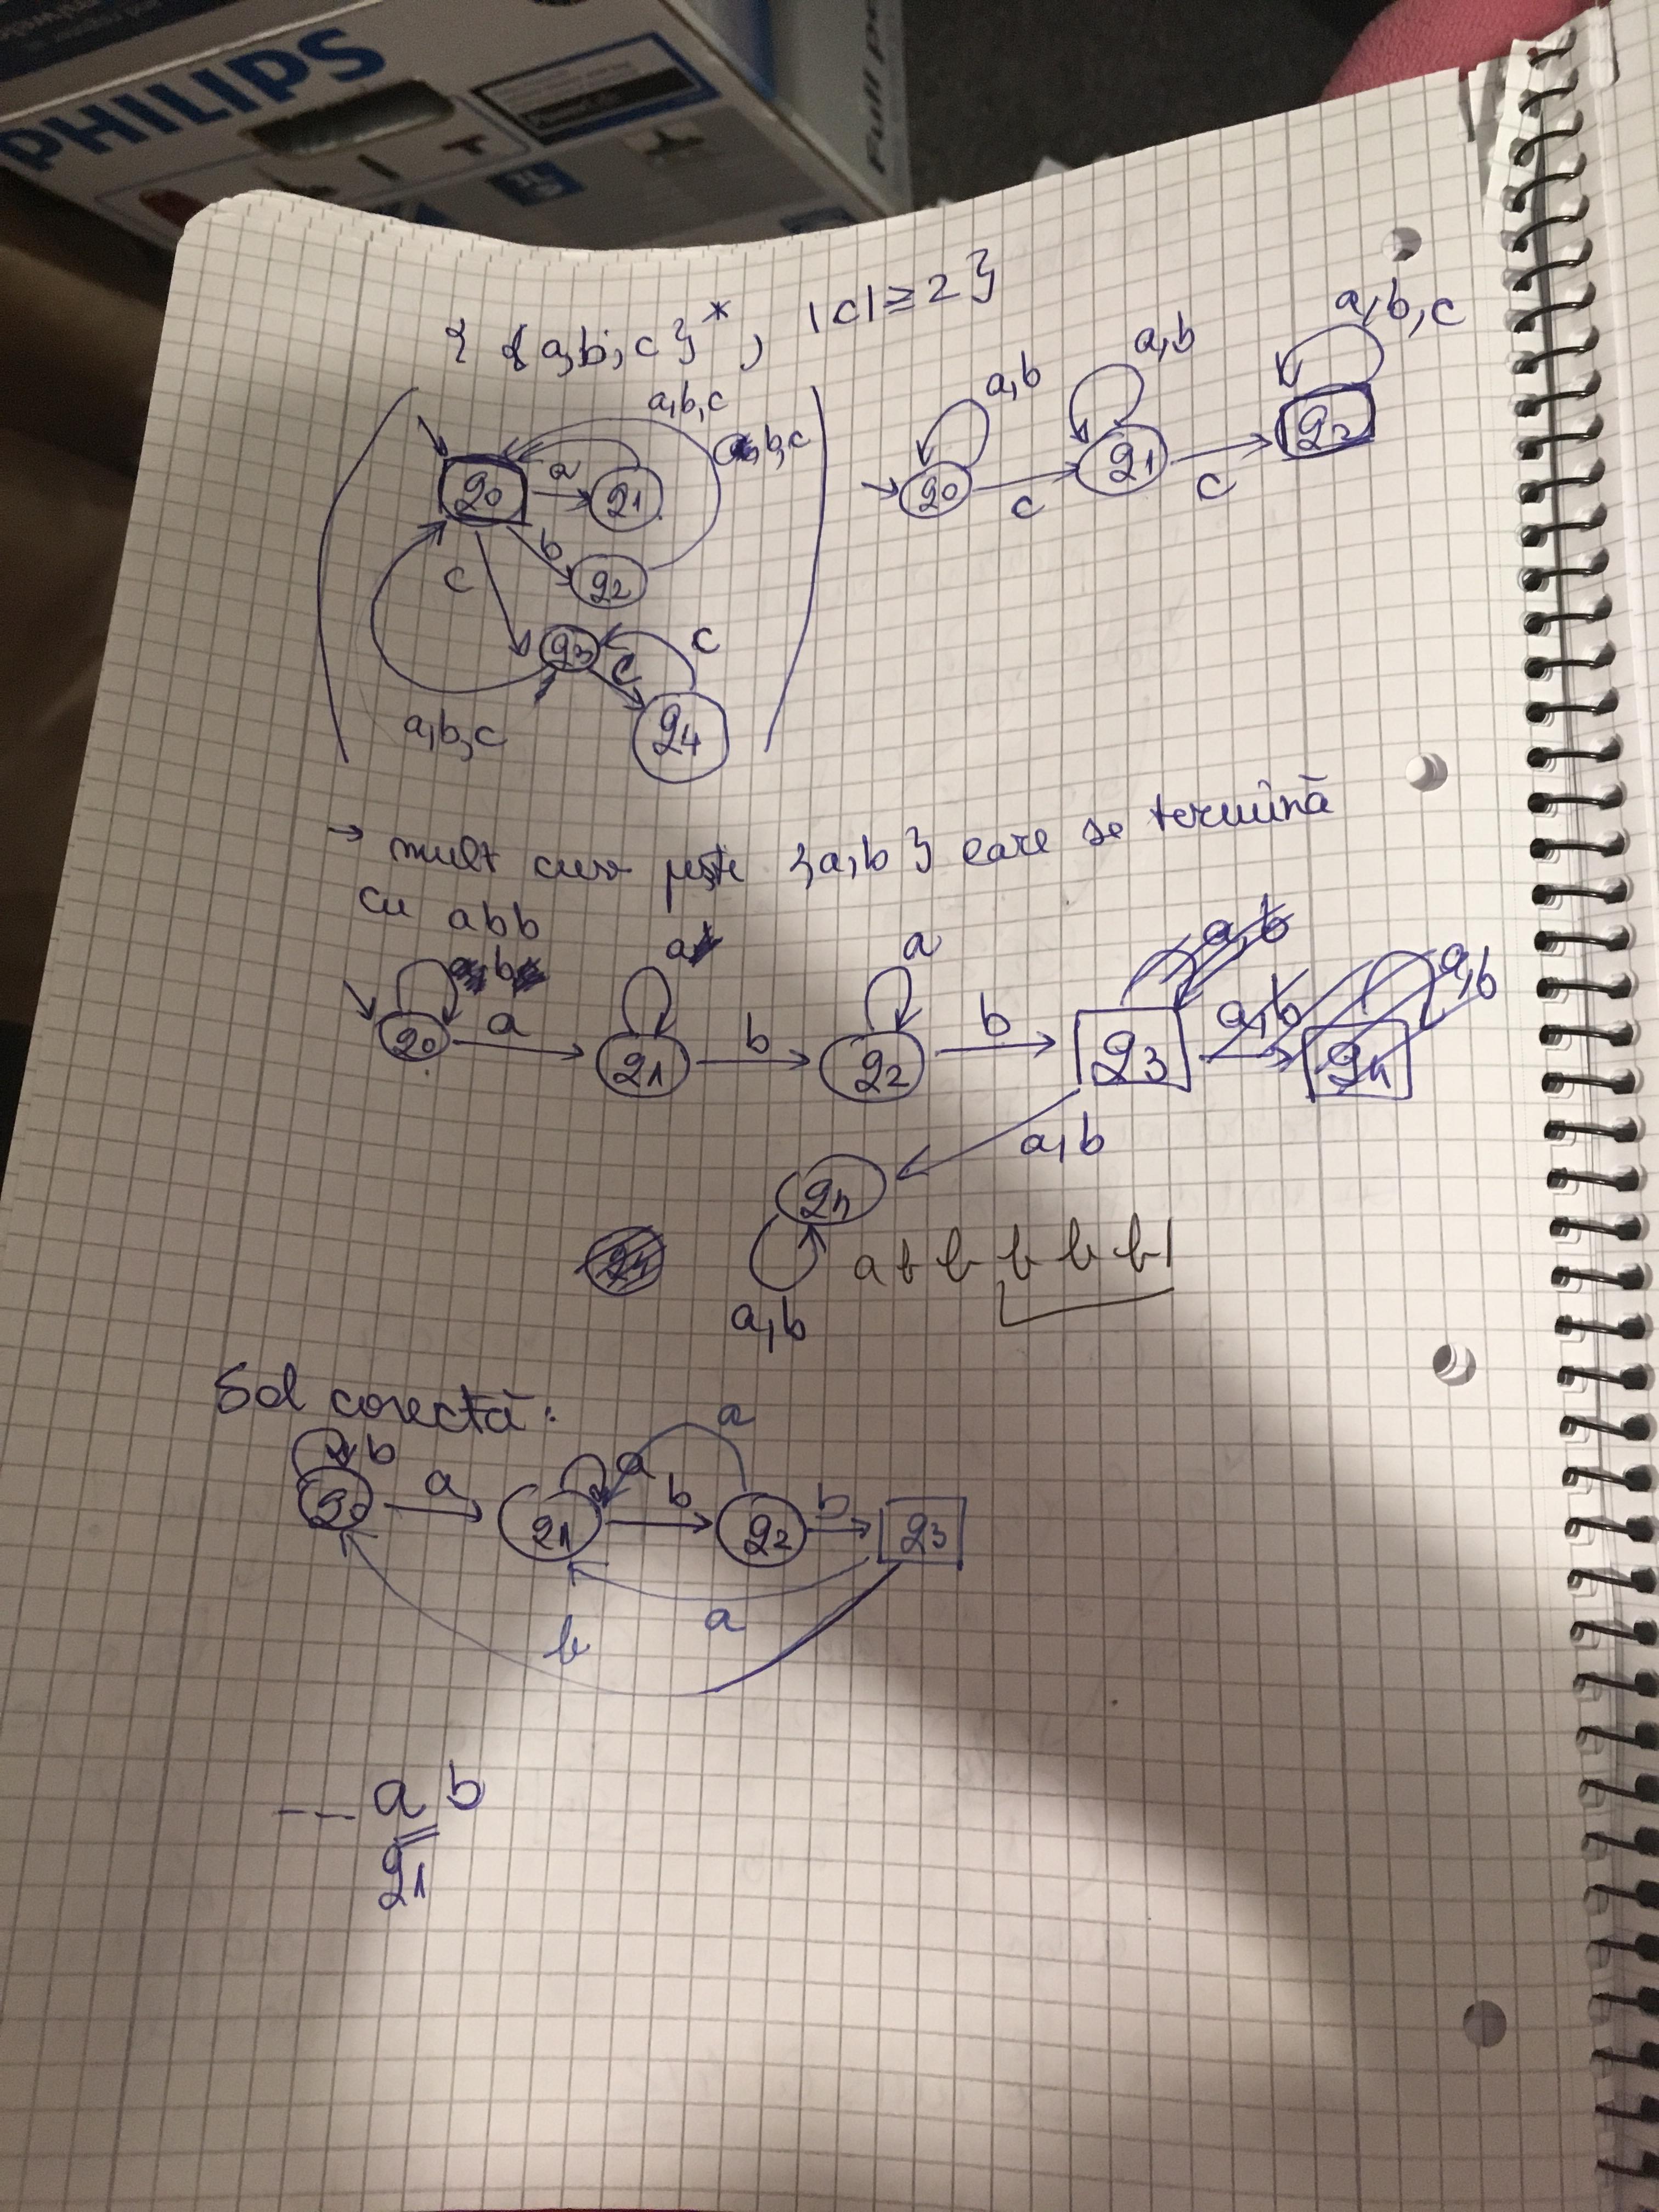 PHILIPS
Full p
{ {a,b,c}*, |c| ≥ 2 }
a,b,c
b,c
q0 a q1
b
q2
c
q3 c c
a,b,c
q4
a,b a,b a,b,c
q0 c q1 c q2
→ mult cuv peste {a,b} care se termină
cu abb
b a a a,b
q0 a q1 b q2 b q3 a,b q4 a,b
a,b
q4
a,b
a b b b b b
Sol corectă:
b a a
q0 a q1 b q2 b q3
a
b
--- a b
q1